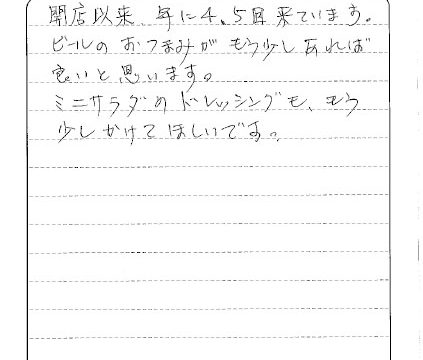 開店以来 年に4、5回来ています。
ビールのおつまみがもう少しあれば
良いと思います。
ミニサラダのドレッシングも、もう
少しかけてほしいです。